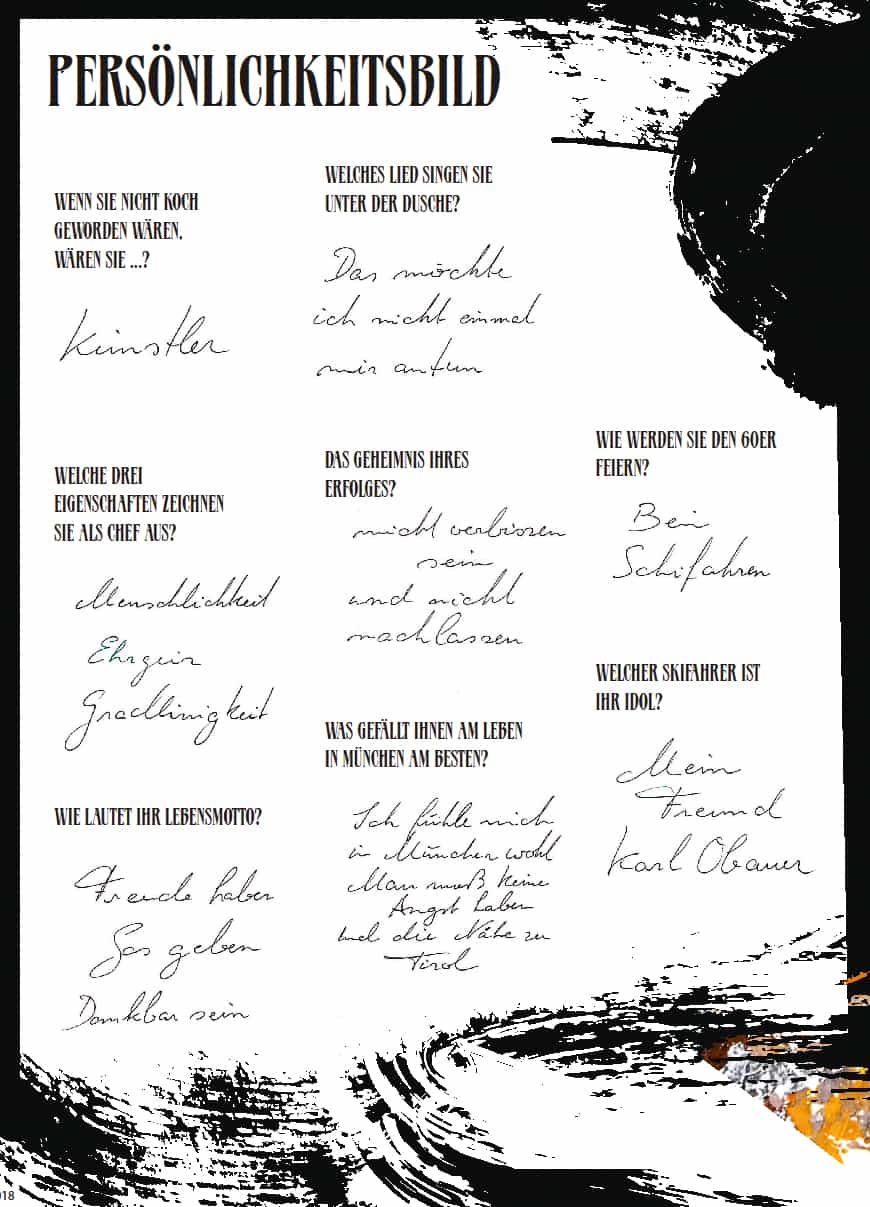 PERSÖNLICHKEITSBILD
WENN SIE NICHT KOCH
GEWORDEN WÄREN,
WÄREN SIE ...?
Künstler
WELCHES LIED SINGEN SIE
UNTER DER DUSCHE?
Das möchte
ich nicht einmal
mir antun
WELCHE DREI
EIGENSCHAFTEN ZEICHNEN
SIE ALS CHEF AUS?
Menschlichkeit
Ehrgeiz
Gradlinigkeit
DAS GEHEIMNIS IHRES
ERFOLGES?
nicht verbissen
sein
und nicht
nachlassen
WIE WERDEN SIE DEN 60ER
FEIERN?
Bein
Schifahren
WELCHER SKIFAHRER IST
IHR IDOL?
Mein
Freund
Karl Obauer
WAS GEFÄLLT IHNEN AM LEBEN
IN MÜNCHEN AM BESTEN?
Ich fühle mich
in München wohl
Man muß keine
Angst haben
und die Nähe zu
Tirol
WIE LAUTET IHR LEBENSMOTTO?
Freude haben
Gas geben
Dankbar sein
018